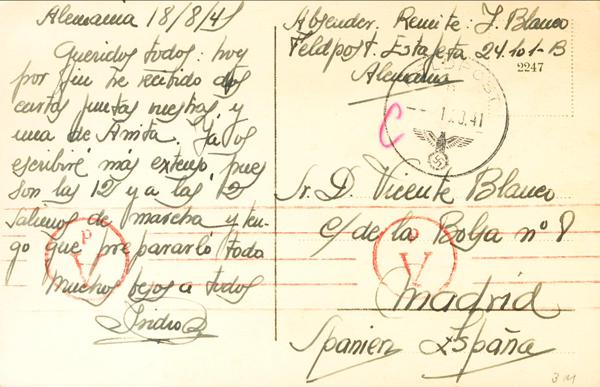 Alemania 18/8/41
Queridos todos: hoy
por fin he recibido dos
cartas juntas vuestras y
una de Anita. Ya os
escribiré más extenso pues
son las 12 y a las 12
salimos de marcha y ten-
go que prepararlo todo
Muchos besos a todos
Isidro
Absender. Remite: J. Blanco
Feldpost. Estafeta 24.101-B
Alemania
2247
FELDPOST
41
C
Sr. D. Vicente Blanco
c/ de la Bolsa nº 8
Madrid
Spanien España
d
A
d
A
3 M